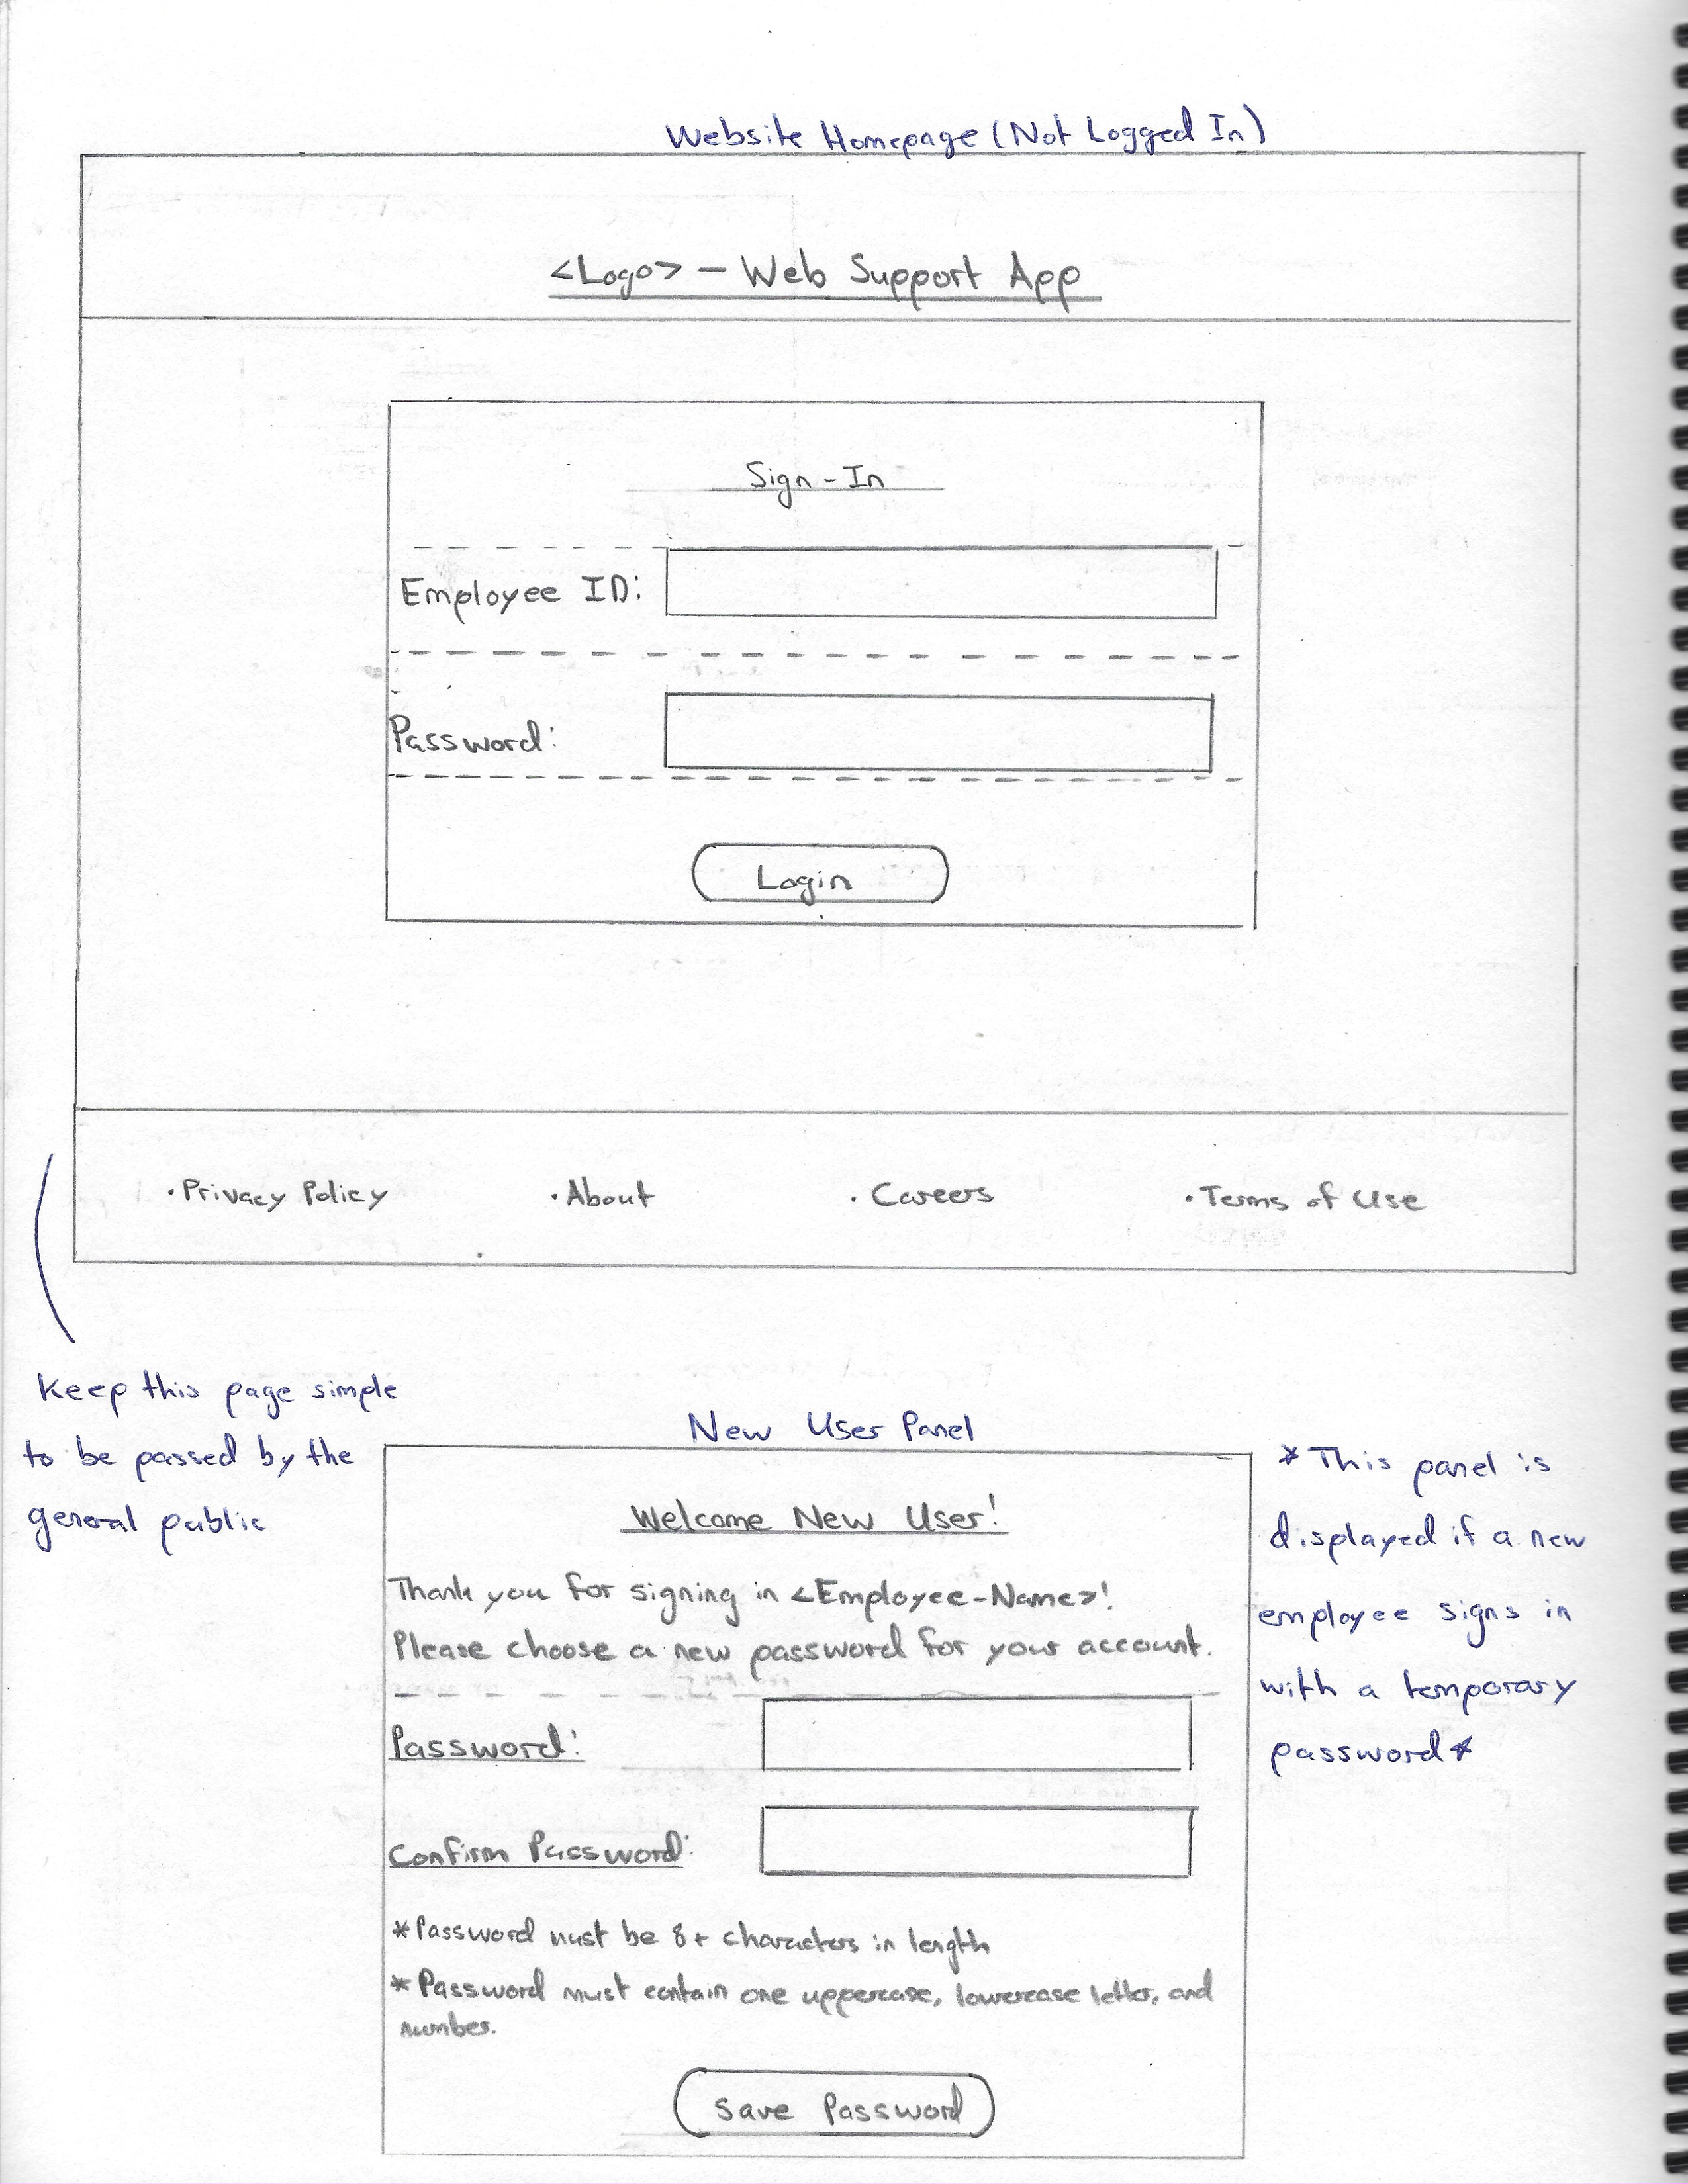 Website Homepage (Not Logged In)
<Logo> – Web Support App
Sign-In
Employee ID:
Password:
Login
•Privacy Policy •About •Careers •Terms of Use
Keep this page simple
to be passed by the
general public
New User Panel
Welcome New User!
Thank you for signing in <Employee-Name>!
Please choose a new password for your account.
Password:
Confirm Password:
*Password must be 8+ characters in length
*Password must contain one uppercase, lowercase letter, and
number.
Save Password
*This panel is
displayed if a new
employee signs in
with a temporary
password*